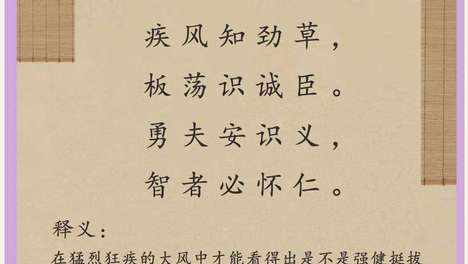 疾风知劲草，
板荡识诚臣。
勇夫安识义，
智者必怀仁。
释义：
在猛烈狂疾的大风中才能看得出是不是强健挺拔